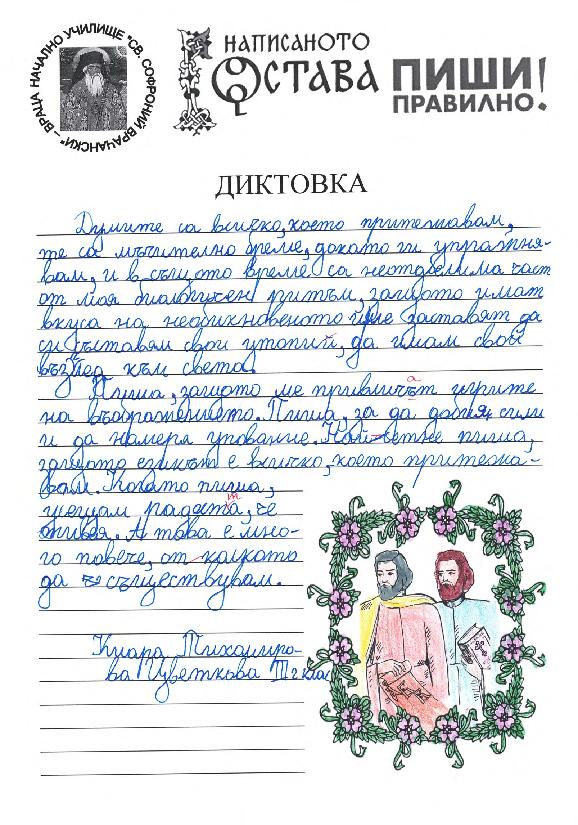 НАЧАЛНО УЧИЛИЩЕ "СВ. СОФРОНИЙ ВРАЧАНСКИ" – ВРАЦА
НАПИСАНОТО
ОСТАВА
ПИШИ
ПРАВИЛНО!
ДИКТОВКА
Думите са всичко, което притежавам,
те са мъчително бреме, докато ги упражня-
вам, и в същото време са неотделима част
от моя биологичен ритъм, защото имат
вкуса на необикновеното и ме заставят да
си съставям свои утопии, да имам свой
възглед към света.
Пиша, защото ме привличат игрите
на въображението. Пиша, за да давам сили
и да намеря упование. Най-вече пиша,
защото езикът е всичко, което притежа-
вам. Когато пиша,
усещам радостта, че
оживя. А това е мно-
го повече, от колкото
да съществувам.
Киара Тихомиро-
ва Цветкова III г клас